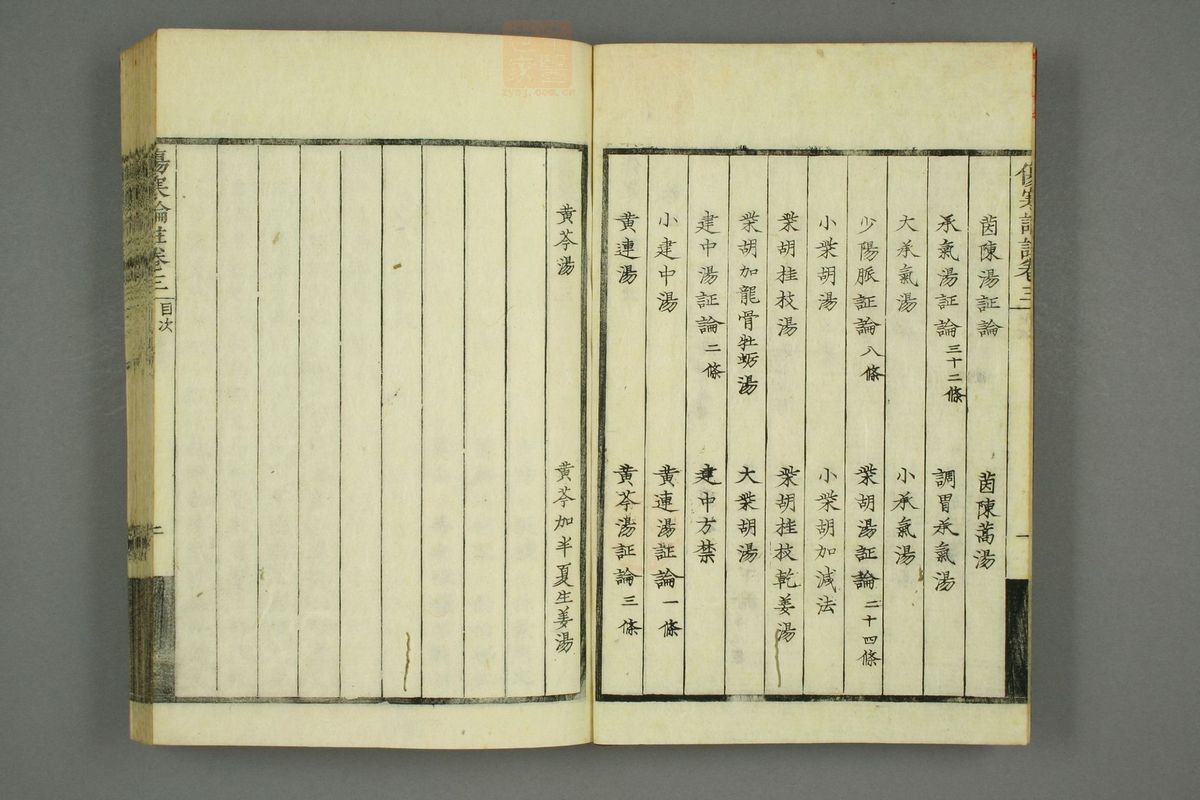 傷寒論註卷三
茵陳湯証論
茵陳蒿湯
承氣湯証論 三十二條
調胃承氣湯
大承氣湯
小承氣湯
少陽脈証論 八條
柴胡湯証論 二十四條
小柴胡湯
小柴胡加減法
柴胡桂枝湯
柴胡桂枝乾姜湯
柴胡加龍骨牡蛎湯
大柴胡湯
建中湯証論 二條
建中方禁
小建中湯
黄連湯証論 一條
黄連湯
黄芩湯証論 三條
黄芩湯
黄芩加半夏生姜湯
傷寒論註卷三
目次
二
zysj.com.cn